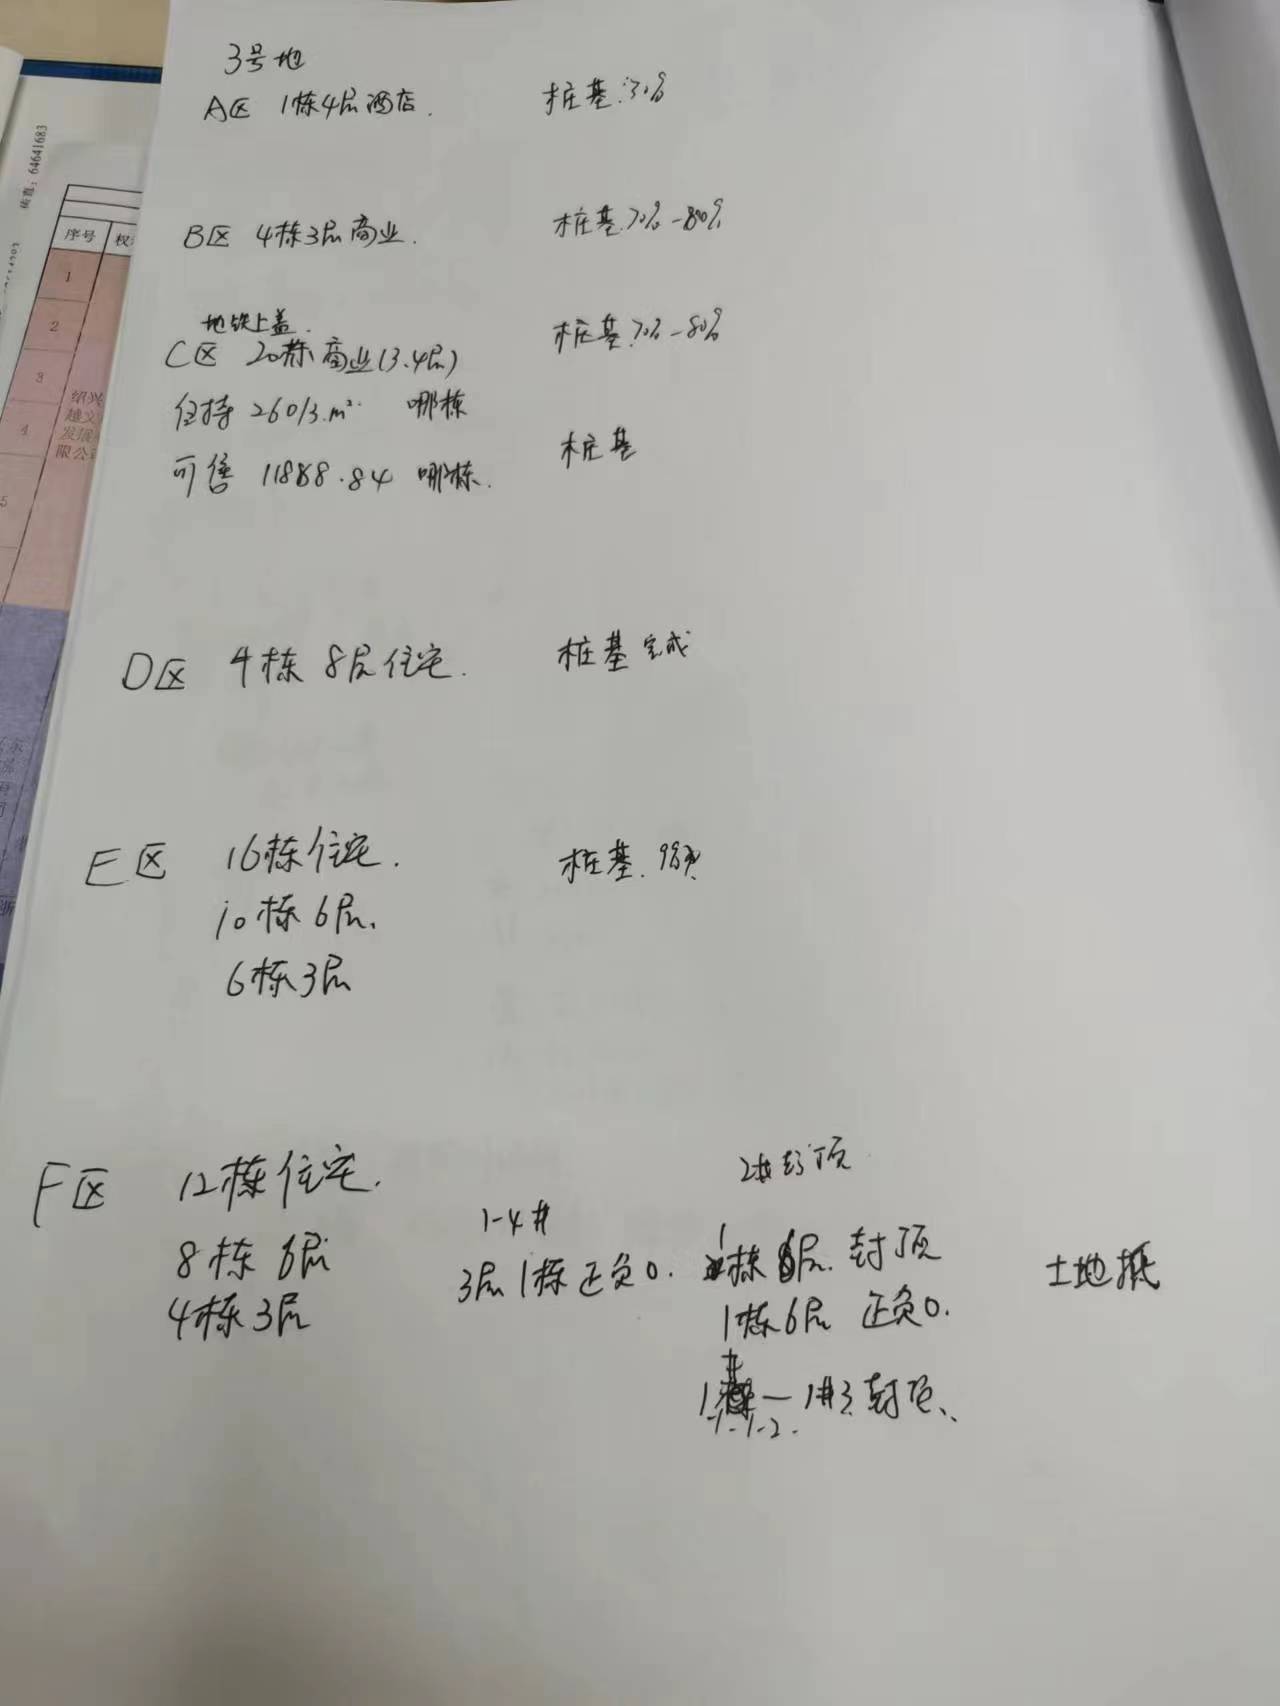 3号地
A区 1栋4层酒店. 桩基:30%
B区 4栋3层商业. 桩基70%-80%
地铁上盖.
C区 20栋商业(3.4层) 桩基70%-80%
自持 26013.m² 哪栋
可售 11888.84 哪栋. 桩基
D区 4栋 8层住宅. 桩基完成
E区 16栋住宅. 桩基.
10栋6层.
6栋3层
F区 12栋住宅. 2#封顶
8栋 6层 1-4#
3层1栋正负0. 1栋6层.封顶 土地抵
4栋3层 1栋6层 正负0.
1# — 1#3封顶、
1-1-2.
序号 权
1
2
3
4
5
绍兴
越文
发展
限公
传真: 64641683